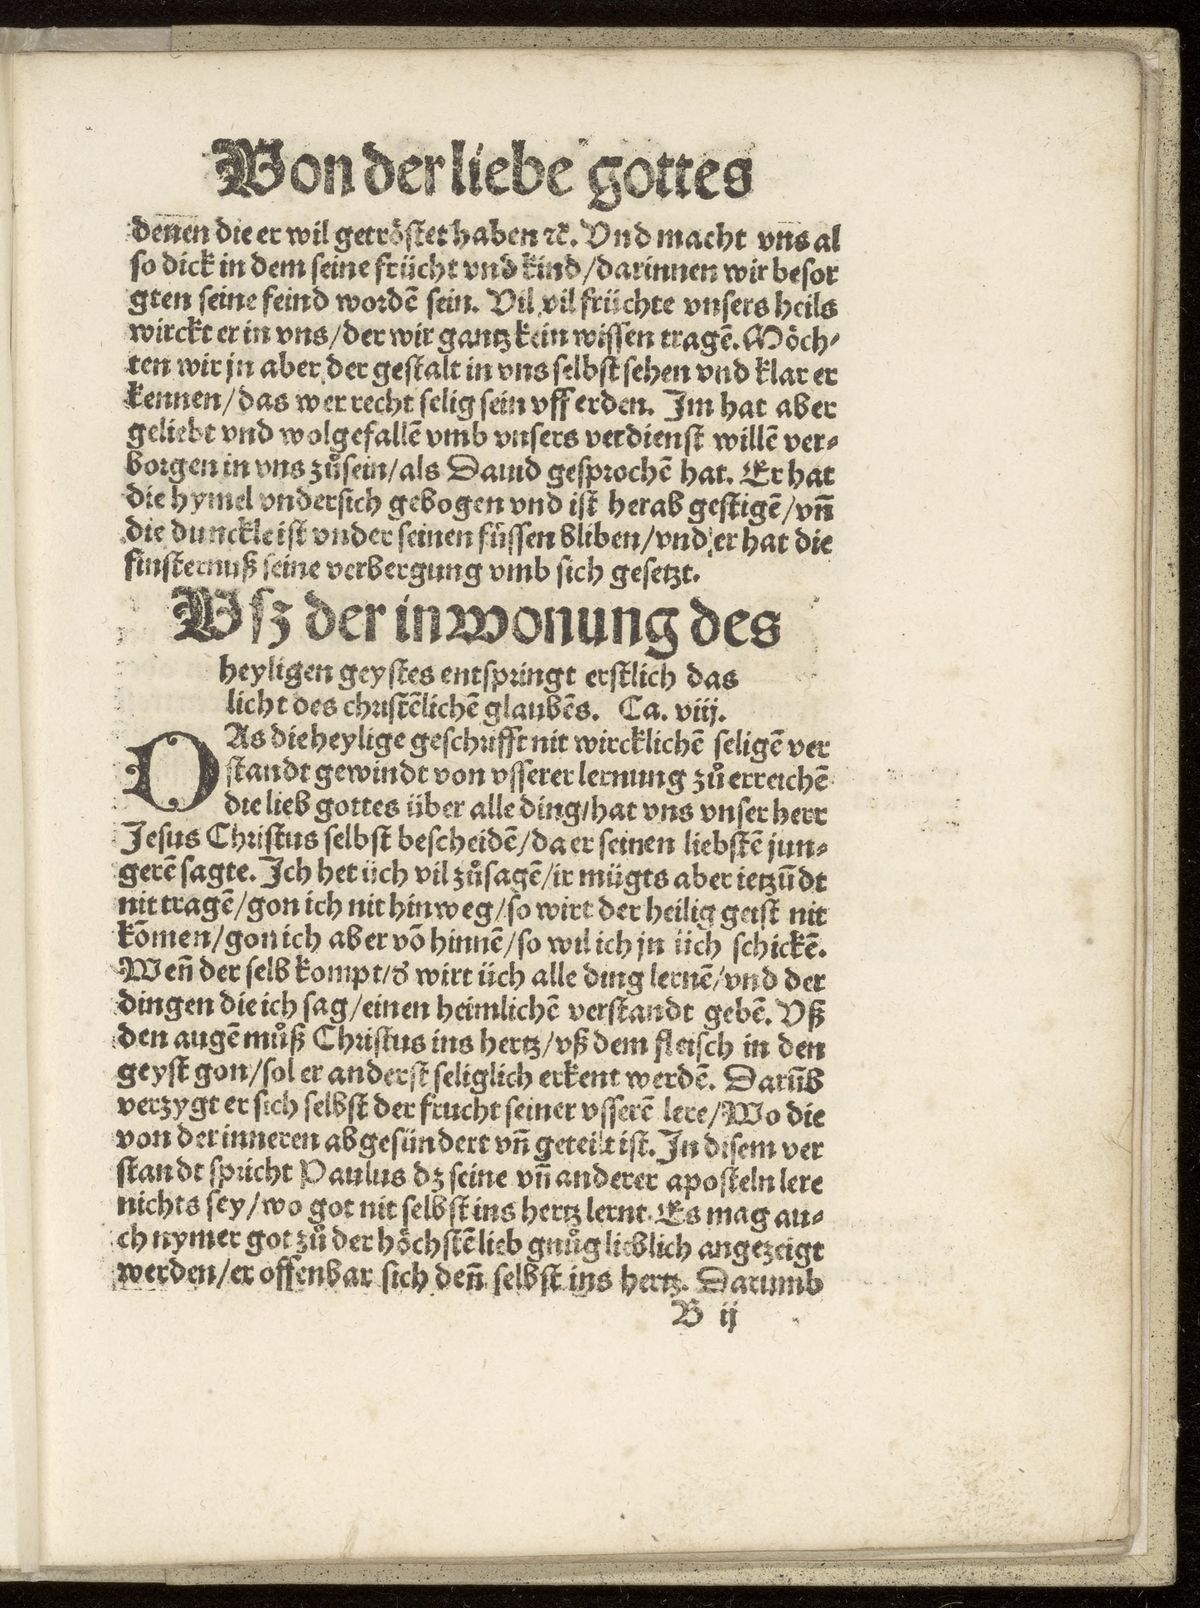 Von der liebe gottes
denen die er wil getröstet haben ꝛc̈. Vnd macht vn̄s al
so dick in dem seine frücht vnd kind/darinnen wir besor
gten seine feind wordē sein. Vil vil früchte vnsers heils
wirckt er in vns/der wir gantz kein wissen tragē. Möch⸗
ten wir jn aber der gestalt in vns selbst sehen vnd klar er
kennen/das wer recht selig sein vff erden. Im hat aber
geliebt vnd wolgefallē vmb vnsers verdienst willē ver⸗
borgen in vns zůsein/als Dauid gesprochē hat. Er hat
die hymel vndersich gebogen vnd ist herab gestigē/vn̄
die dunckle ist vnder seinen füssen bliben/vnd er hat die
finsternuß seine verbergung vmb sich gesetzt.
Vsz der inwonung des
heyligen geystes entspringt erstlich das
licht des christēlichē glaubēs. Ca. viij.
DAs die heylige geschrifft nit wircklichē seligē ver
standt gewindt von vsserer lernung zů erreichē
die lieb gottes über alle ding/hat vns vnser herr
Jesus Christus selbst bescheidē/da er seinen liebstē jun⸗
gerē sagte. Ich het üch vil zůsagē/ir mügts aber ietzūdt
nit tragē/gon ich nit hinweg/so wirt der heilig geist nit
kōmen/gon ich aber vō hinnē/so wil ich jn üch schickē.
Wen̄ der selb kompt/d̓ wirt üch alle ding lernē/vnd der
dingen die ich sag/einen heimlichē verstandt gebē. Vß
den augē můß Christus ins hertz/vß dem fleisch in den
geyst gon/sol er anderst seliglich erkent werdē. Darūb
verzygt er sich selbst der frucht seiner vsserē lere/Wo die
von der inneren abgesündert vn̄ geteilt ist. In disem ver
standt spricht Paulus dz seine vn̄ anderer aposteln lere
nichts sey/wo got nit selbst ins hertz lernt. Es mag au⸗
ch nymer got zů der höchstē lieb gnůg lieblich angezeigt
werden/er offenbar sich den̄ selbst ins hertz. Darumb
B ij